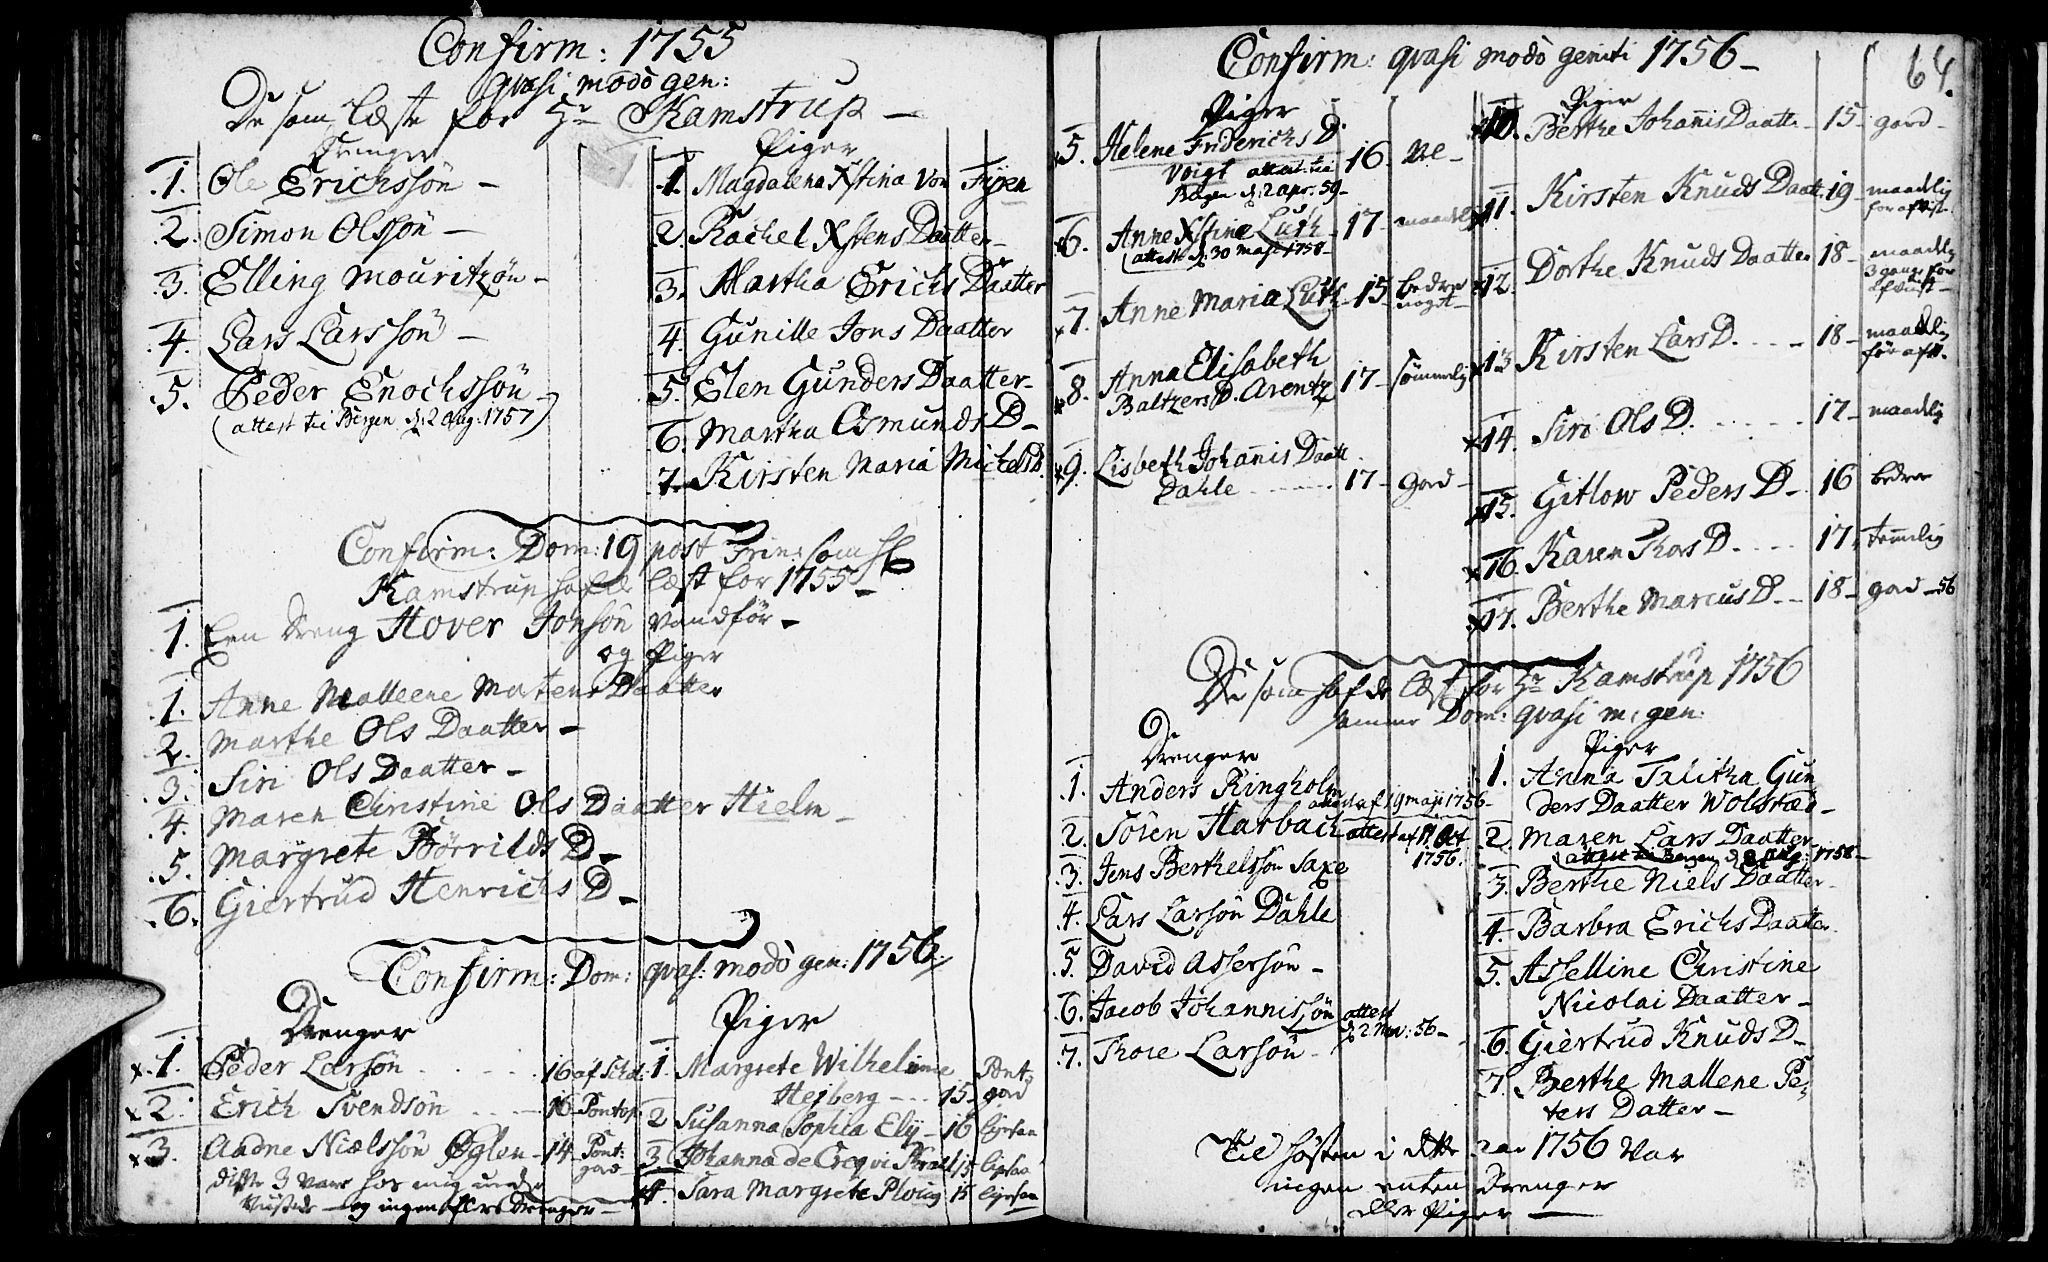 Confirm: 1755
qvasi modo gen:
De som læste for Hr Kamstrup
Drenger
1. Ole Erichssøn
2. Simon Olssøn
3. Elling Mouritzøn
4. Lars Larssøn
5. Peder Enochssøn
(attest til Bergen d: 2 Aug: 1757)
Piger
1. Magdalena Xstina Von Fyren
2. Rachel Xstens Daatter
3. Martha Erichs Daatter
4. Gunille Jons Daatter
5. Elen Gunders Daatter
6. Martha Osmunds D
7. Kirsten Maria Michels D.
Confirm: Dom: 19 post Trin: som Hr
Kamstrup hafde læst for 1755
1. Een Dreng Hover Jonsøn vandför
og Piger
1. Anne Malleene Mortens Daatter
2. Marthe Ols Daatter
3. Siri Ols Daatter
4. Maren Christine Ols Daatter Hielm
5. Margrete Börrilds D
6. Giertrud Henrichs D
Confirm: Dom: qvas: modo gen: 1756
Drenger
x 1. Peder Larsøn 16 af Schol:
x 2. Erich Svendsøn 16 Pontop:
x 3. Aadne Nielssøn Øglen 14 Pont: god
disse 3 vare hos mig under
og ingen flere Drenger
Piger
1. Margrete Wilhelmine Heiberg 15 Pont: god
2 Susanna Sophia Ely 16 ligesaa
3 Johanna de Creqvi Krall 15 ligesaa
4. Sara Margrete Ploug 15 ligesaa
Confirm: qvasi modo geniti 1756
64.
Piger
x 5. Helene Friderichs D.
Voigt attest: til 16.
Bergen d: 2 apr: 59
x 6. Anne Xstine Luth 17 maadelig
(attest d: 30 maji 1758
x 7. Anne Maria Luth 15 bedre noget
x 8. Anna Elisabeth
Baltzers D. Arentz 17 sömmelig
x 9. Lisbeth Johannis Daatt.
Dahle 17 god
Piger
x 10. Berthe Johannis Daatte 15 good
x 11. Kirsten Knuds Daatt. 19 maadelig
for afvist
x 12. Dorthe Knuds Daatter 18 maadelig
3 gange for
afviist
x 13 Kirsten Lars D. 18 maadelig
för afv.
x 14. Siri Ols D. 17 maadelig
x 15. Gitlow Peders D 16 bedre
x 16. Karen Thors D 17, temmelig
x 17. Berthe Marcus D. 18 god 56
De som hafde læst for Hr Kamstrup 1756
samme Dom: qvasi m: gen:
Drengere
1. Anders Ringholm
attest af 19 maji 1756
2. Sören Harbach attest af 11 Oct
1756.
3. Jens Berthelssøn Saxe
4. Lars Larsøn Dahle
5. David Assersøn
6. Jacob Johannissøn attest
d: 2 Mar: 56
7. Thore Larsøn
Piger
1. Anna Talitha Gun
ders Daatter Wolstad
2 Maren Lars Daatter
(attest til Bergen d. 8 Aug: 1758
3. Berthe Niels Daatter
4. Barbra Erichs Daatter
5. Asselline Christine
Nicolai Daatter
6. Giertrud Knuds D
7. Berthe Mallene Pe,
ters Datter
Til høsten i dette aar 1756 var
ingen enten Drenger
eller Piger